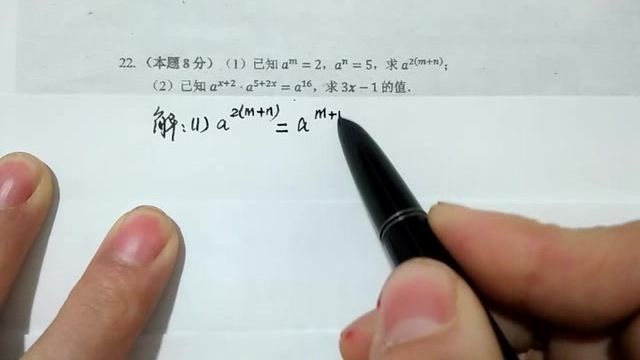 22. （本题 8 分）（1）已知 aᵐ = 2，aⁿ = 5，求 a²⁽ᵐ⁺ⁿ⁾；
（2）已知 aˣ⁺² · a⁵⁺²ˣ = a¹⁶，求 3x − 1 的值.
解:(1) a²⁽ᵐ⁺ⁿ⁾ = aᵐ⁺